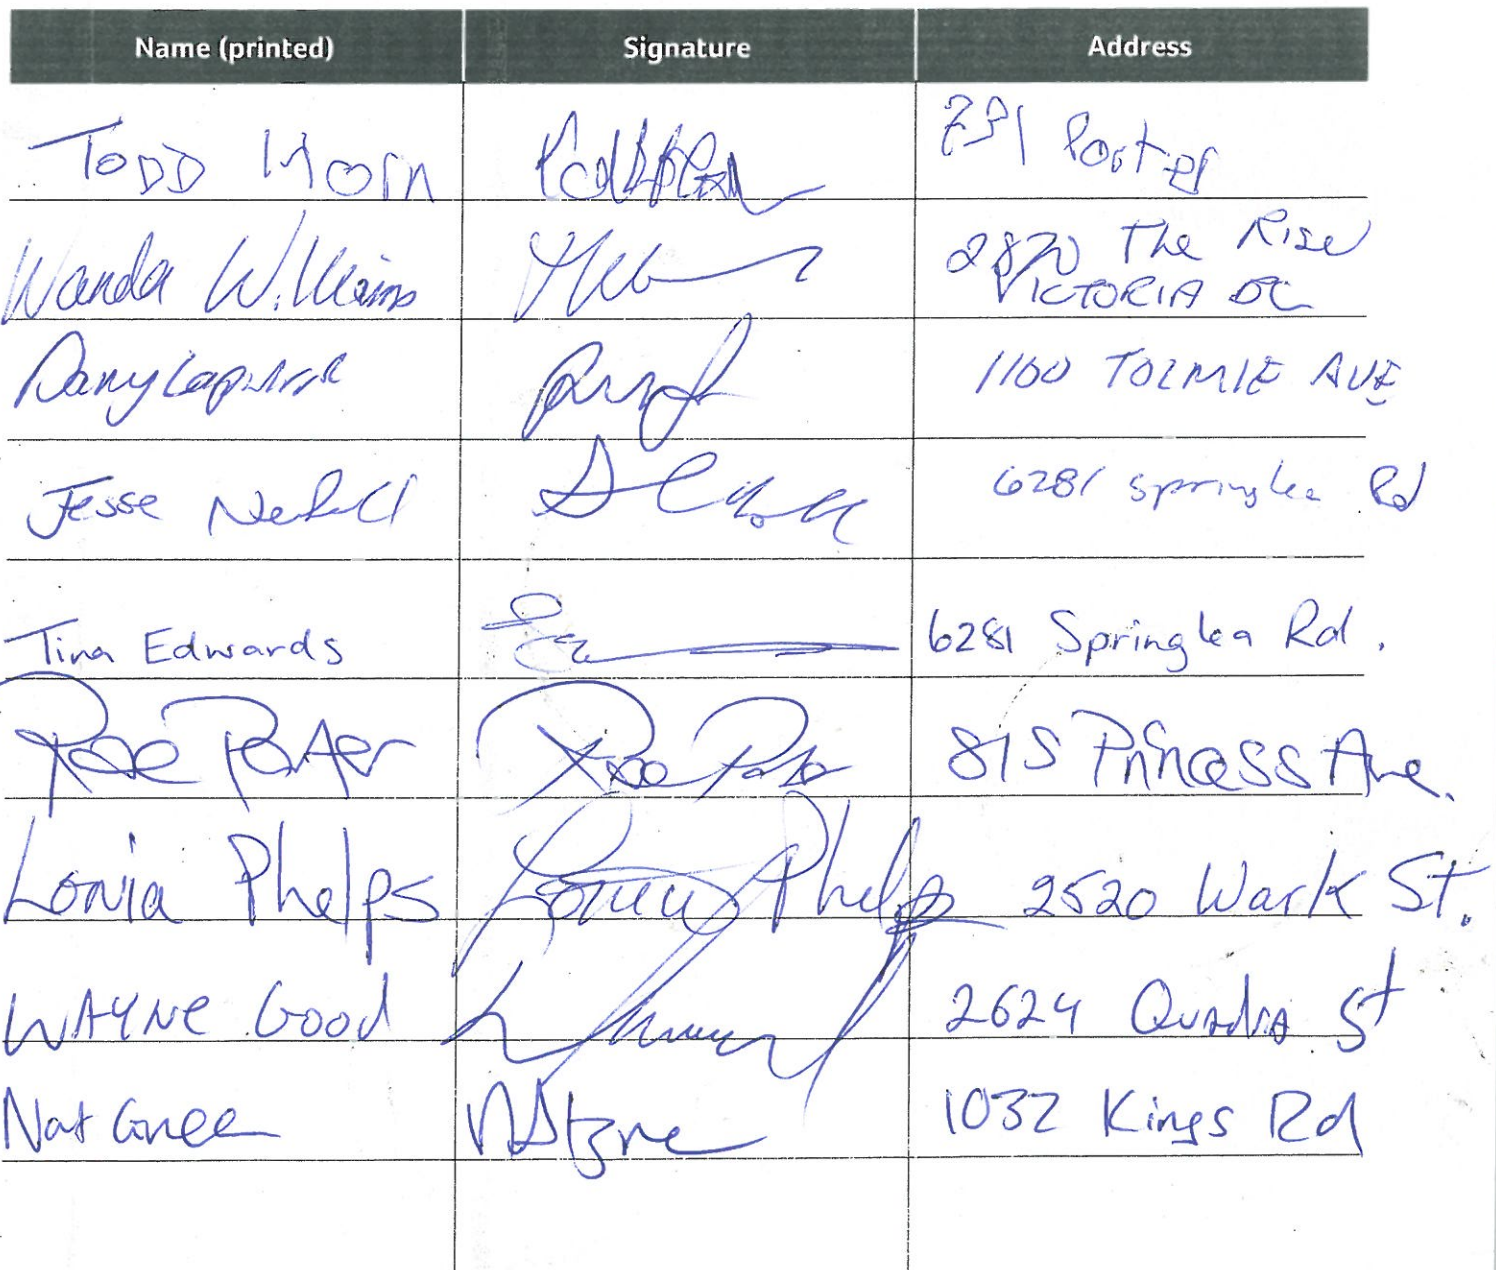 Name (printed) Signature Address
TODD Horn
Porter
Wanda Williams 2820 The Rise
VICTORIA BC
Dany 1100 TOLMIE AVE
Jesse 6281 Springlea Rd
Tina Edwards 6281 Springlea Rd.
Rose Porter Rose Porter 815 Princess Ave.
Lonia Phelps Lonia Phelps 2520 Wark St.
WAYNE Good 2624 Quadra St
Nat Greee 1032 Kings Rd